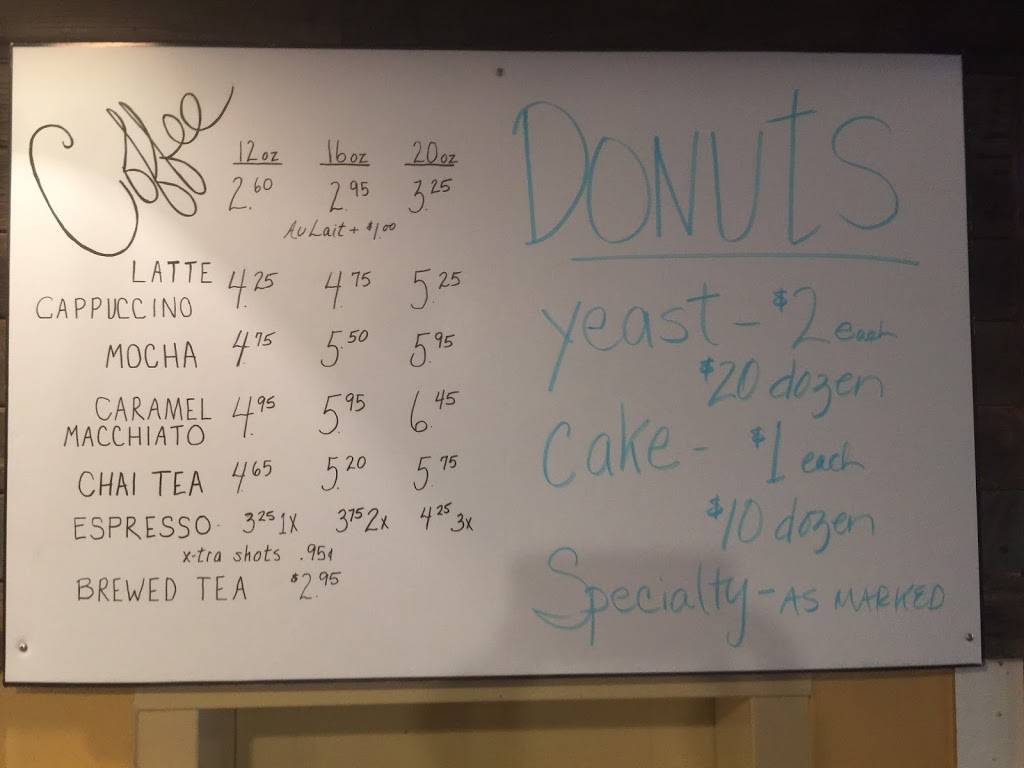 Coffee
12oz 16oz 20oz
2.60 2.95 3.25
Au Lait + $1.00
LATTE
CAPPUCCINO 4.25 4.75 5.25
MOCHA 4.75 5.50 5.95
CARAMEL
MACCHIATO 4.95 5.95 6.45
CHAI TEA 4.65 5.20 5.75
ESPRESSO 3 25 1x 3 75 2x 4 25 3x
x-tra shots .95¢
BREWED TEA $2.95
DONUtS
yeast - $2 each
$20 dozen
Cake - $1 each
$10 dozen
Specialty - AS MARKED